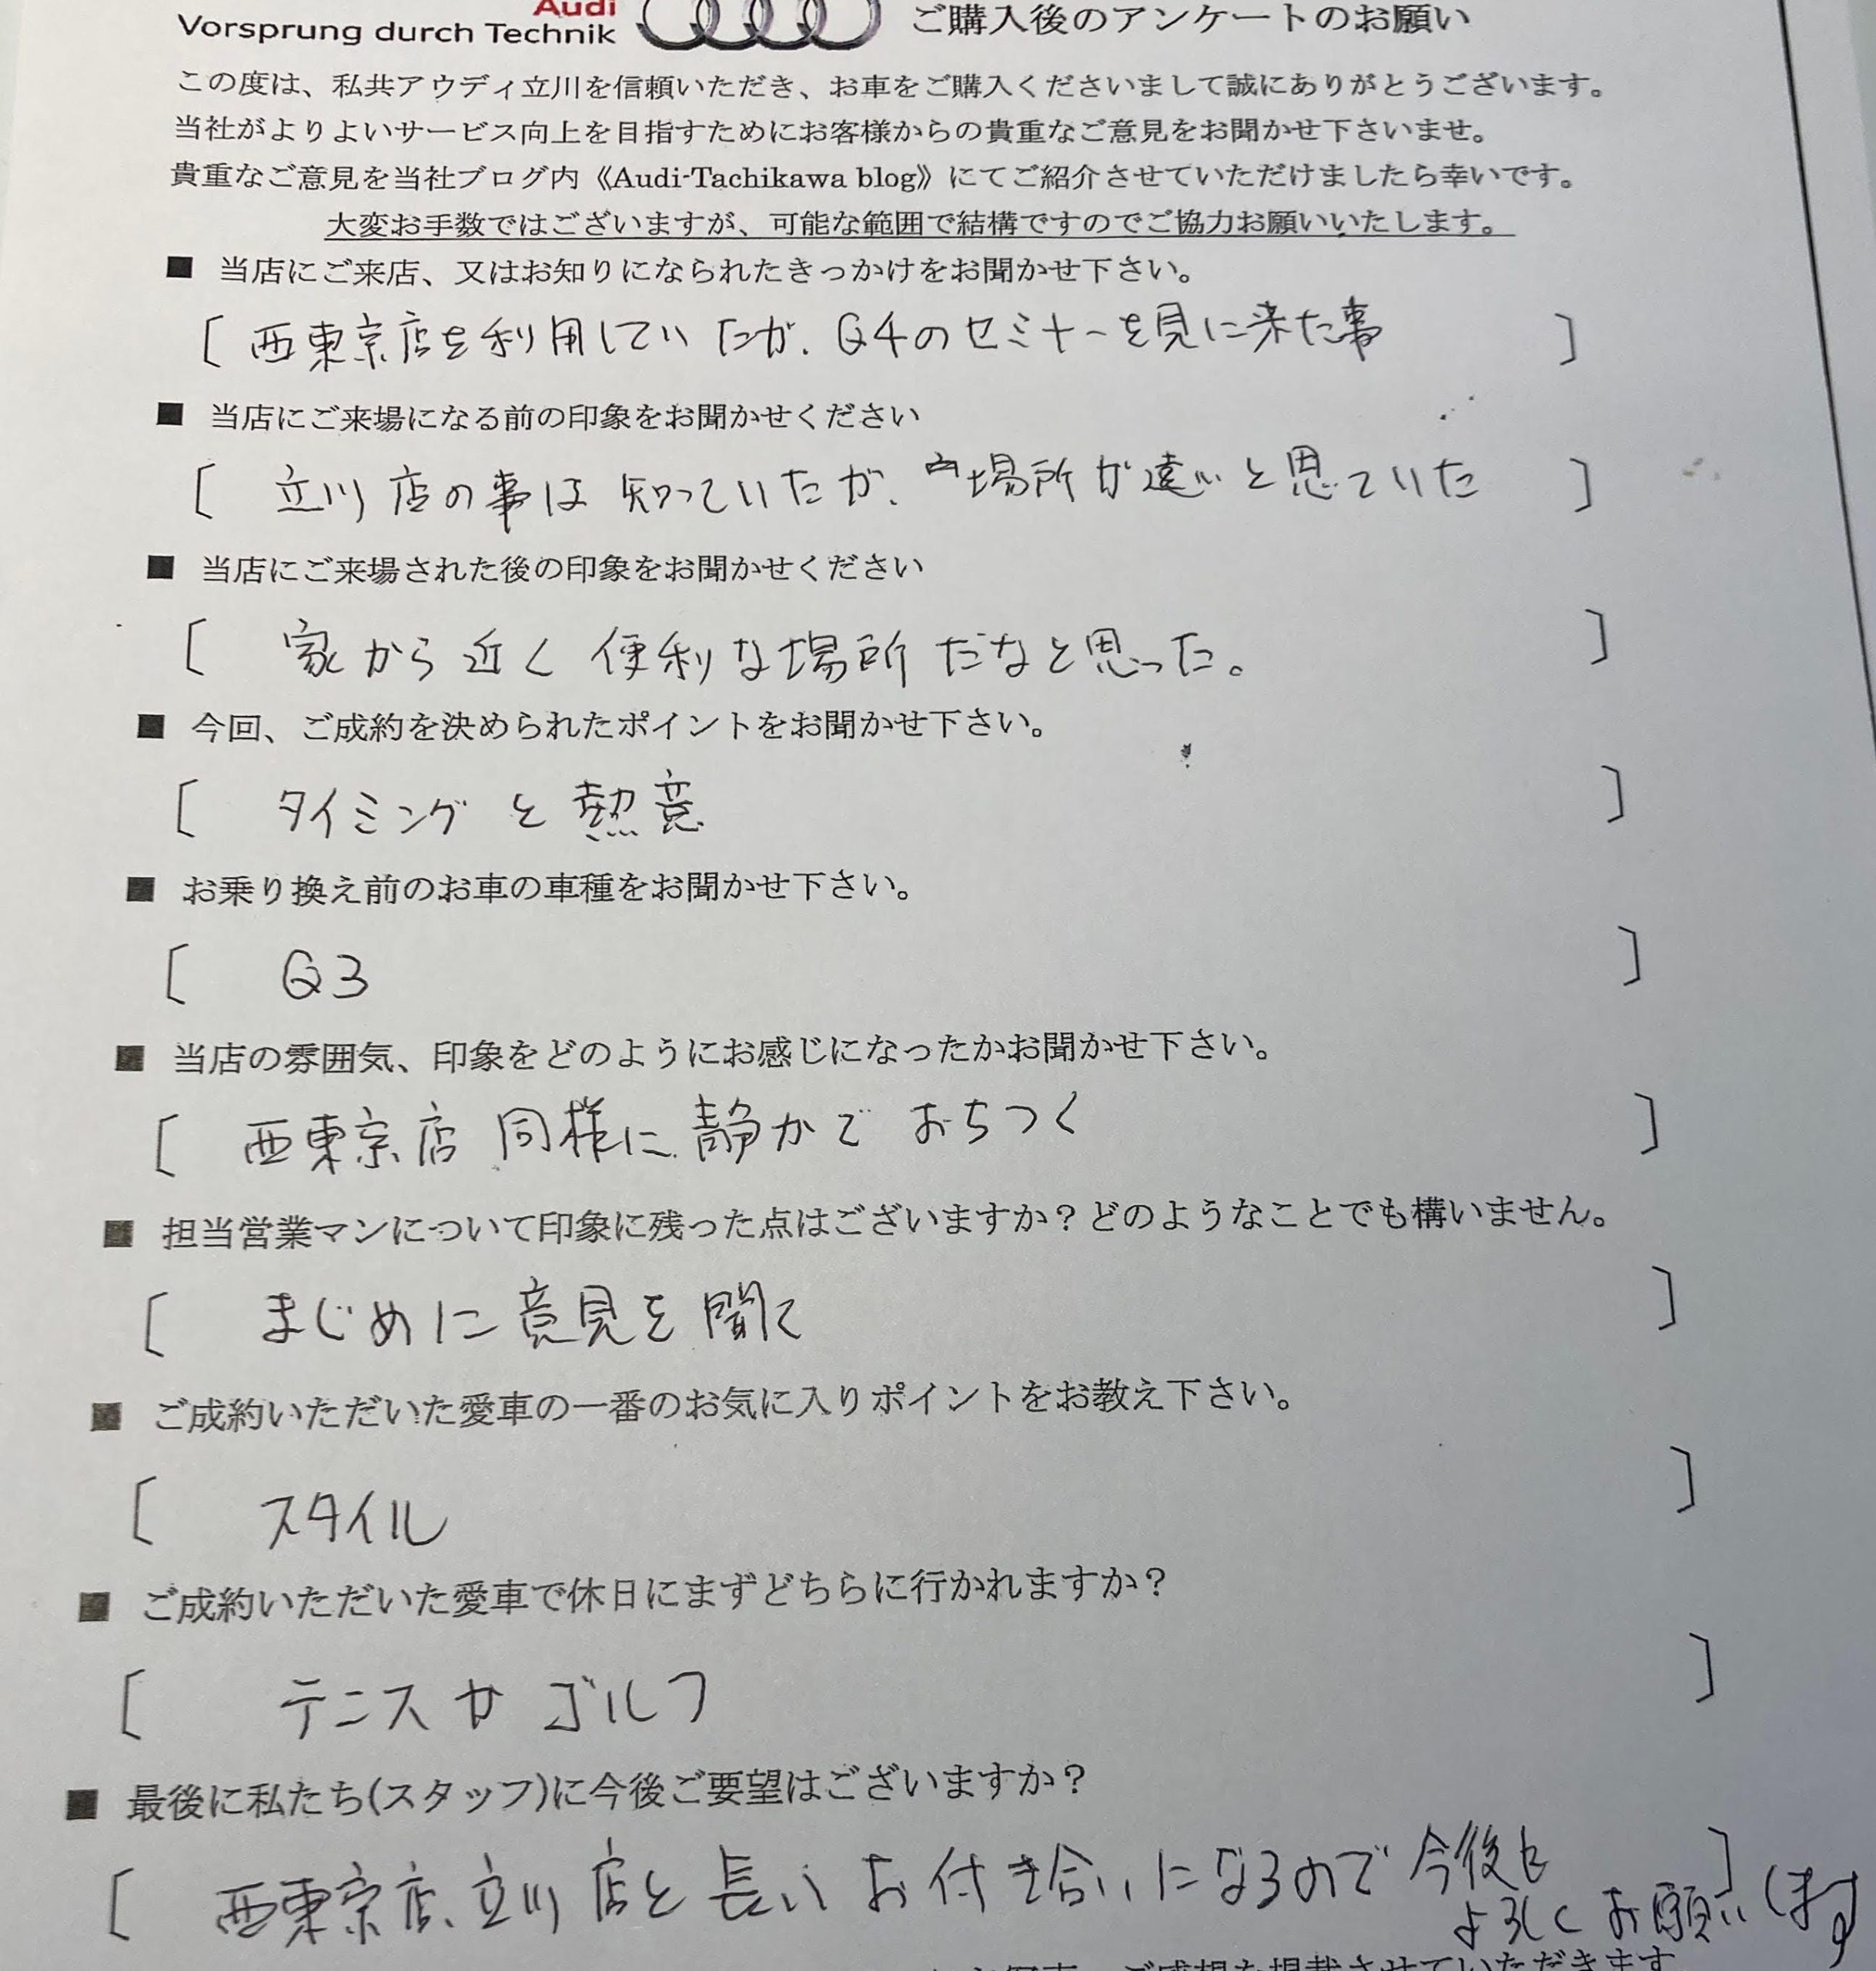 Audi
Vorsprung durch Technik
ご購入後のアンケートのお願い
この度は、私共アウディ立川を信頼いただき、お車をご購入くださいまして誠にありがとうございます。
当社がよりよいサービス向上を目指すためにお客様からの貴重なご意見をお聞かせ下さいませ。
貴重なご意見を当社ブログ内《Audi-Tachikawa blog》にてご紹介させていただけましたら幸いです。
大変お手数ではございますが、可能な範囲で結構ですのでご協力お願いいたします。
■ 当店にご来店、又はお知りになられたきっかけをお聞かせ下さい。
〔 西東京店を利用していたが、Q4のセミナーを見に来た事 〕
■ 当店にご来場になる前の印象をお聞かせください
〔 立川店の事は知っていたが、場所が遠いと思ていた 〕
■ 当店にご来場された後の印象をお聞かせください
〔 家から近く便利な場所だなと思った。 〕
■ 今回、ご成約を決められたポイントをお聞かせ下さい。
〔 タイミングと熱意 〕
■ お乗り換え前のお車の車種をお聞かせ下さい。
〔 Q3 〕
■ 当店の雰囲気、印象をどのようにお感じになったかお聞かせ下さい。
〔 西東京店同様に静かでおちつく 〕
■ 担当営業マンについて印象に残った点はございますか？どのようなことでも構いません。
〔 まじめに意見を聞く 〕
■ ご成約いただいた愛車の一番のお気に入りポイントをお教え下さい。
〔 スタイル 〕
■ ご成約いただいた愛車で休日にまずどちらに行かれますか？
〔 テニスかゴルフ 〕
■ 最後に私たち(スタッフ)に今後ご要望はございますか？
〔 西東京店、立川店と長いお付き合いになるので今後も 〕
よろしくお願いします
ご感想を掲載させていただきます